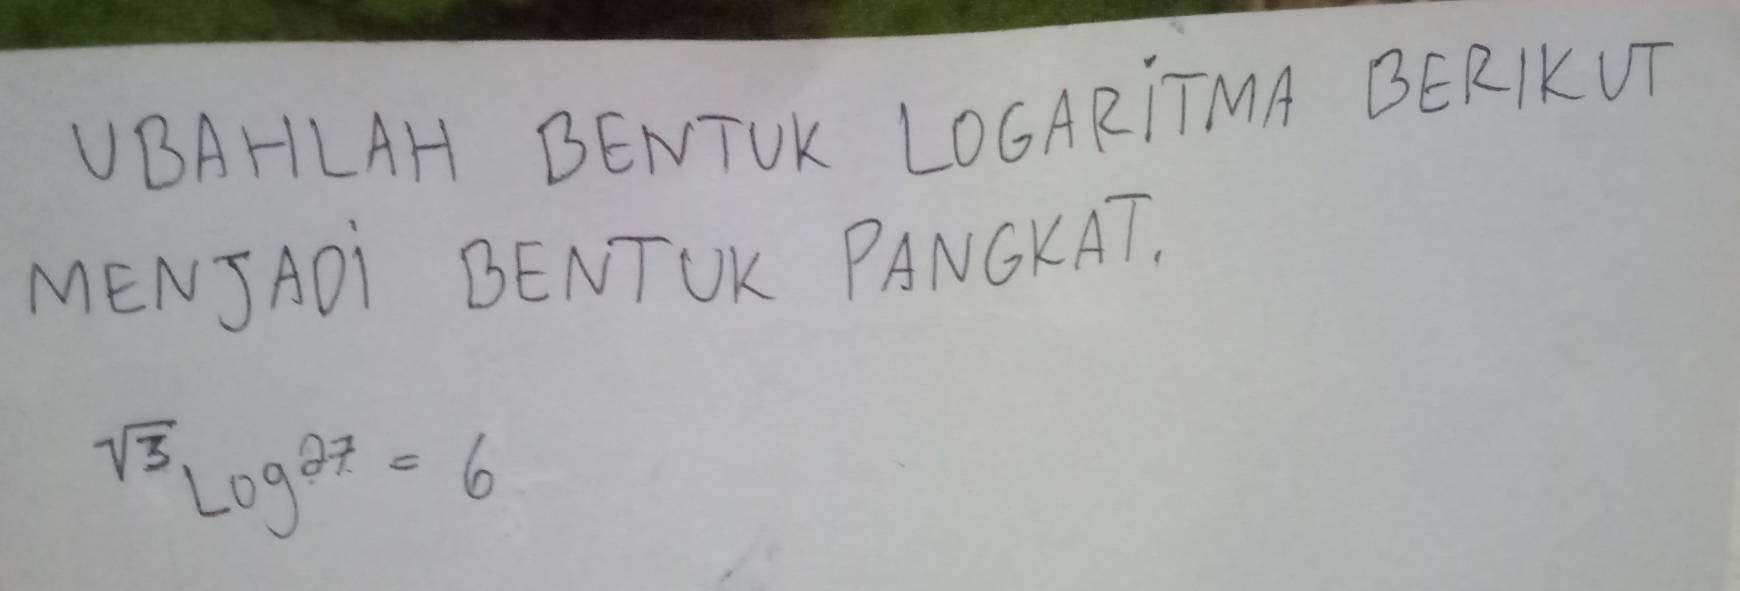 UBAHLAH BENTUK LOGARITMA BERIKUT
MENJADI BENTUK PANGKAT.
√3 Log 27 = 6